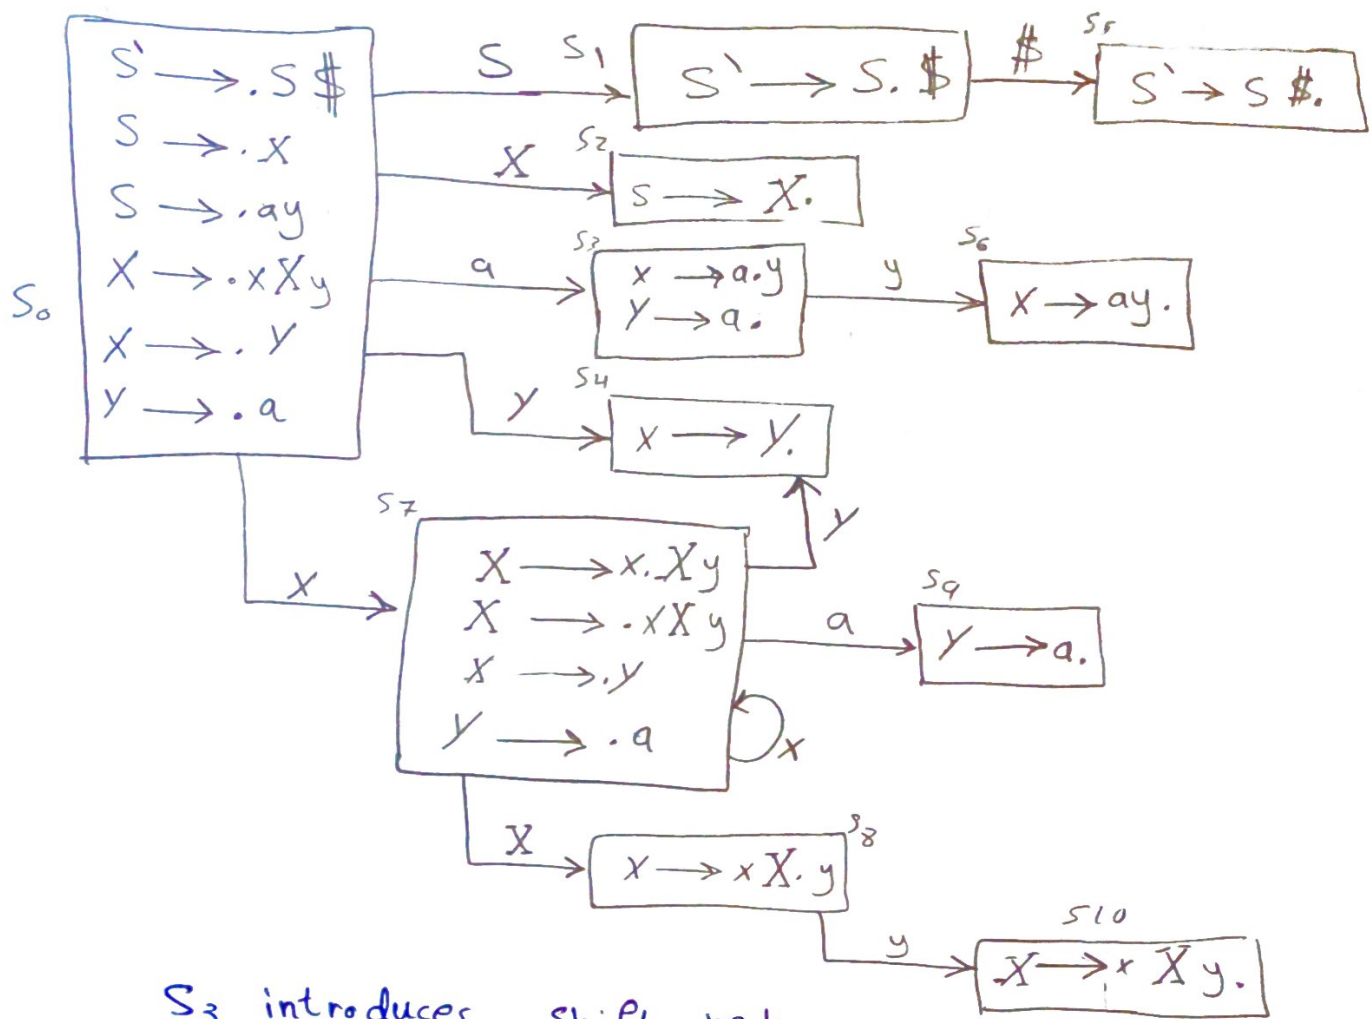 S` → .S $
S → .X
S → .ay
X → .xXy
X → .Y
Y → .a
S₀
S
S₁
S` → S.$
$
S₅
S` → S $.
X
S₂
S → X.
a
S₃
X → a.y
Y → a.
y
S₆
X → ay.
Y
S4
X → Y.
x
S7
X → x.Xy
X → .xXy
X → .Y
Y → .a
Y
a
S9
Y → a.
x
X
S8
X → xX.y
y
S10
X → x Xy.
S₃ introduces